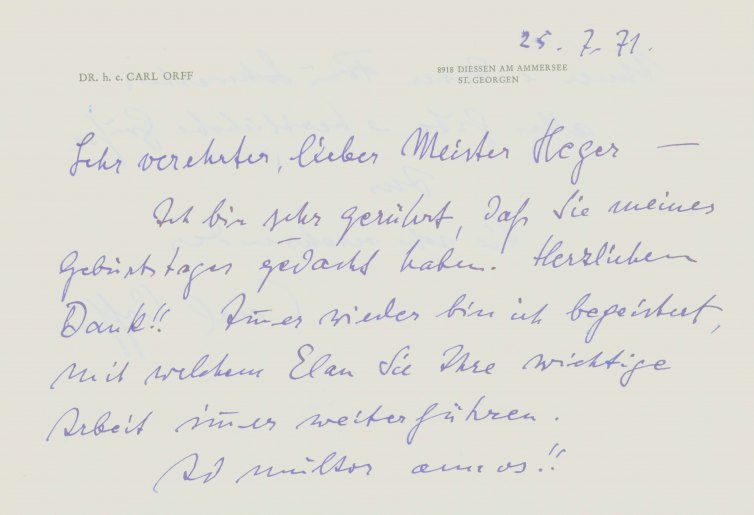 25. 7. 71.
DR. h. c. CARL ORFF
8918 DIESSEN AM AMMERSEE
ST. GEORGEN
Sehr verehrter, lieber Meister Heger —
Ich bin sehr gerührt, daß Sie meines
Geburtstages gedacht haben. Herzlichen
Dank!! Im̄er wieder bin ich begeistert,
mit welchem Elan Sie Ihre wichtige
Arbeit im̄er weiterführen.
Ad multos annos!!